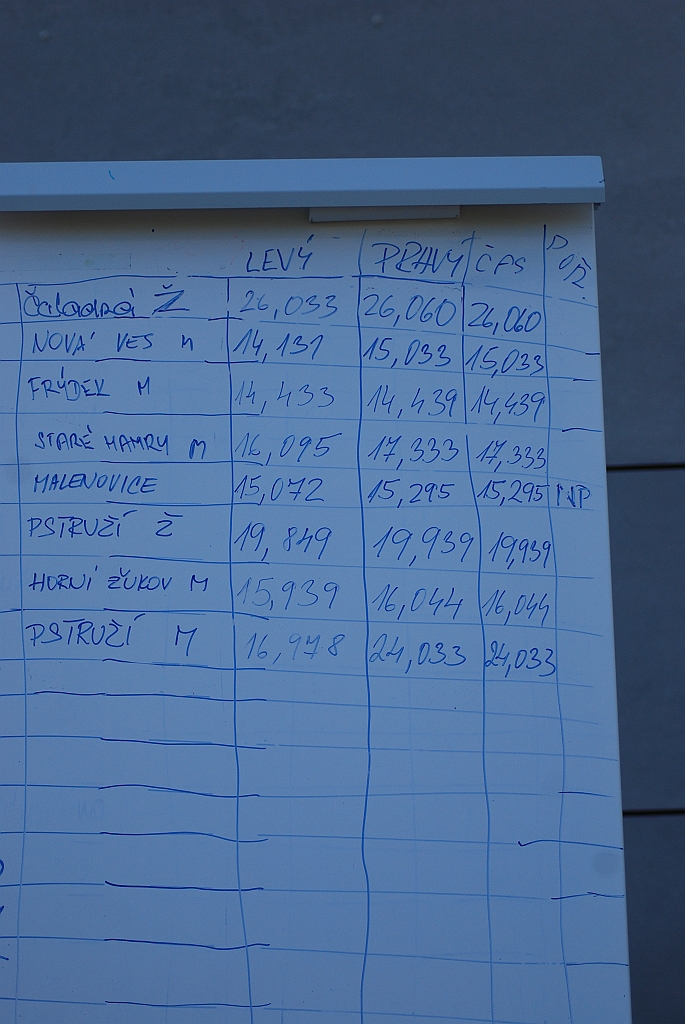 LEVÝ PRAVÝ ČAS POŘ.
Čeladná Ž 26,033 26,060 26,060
NOVÁ VES M 14,131 15,033 15,033
FRÝDEK M 14,433 14,439 14,439
STARÉ HAMRY M 16,095 17,333 17,333
MALENOVICE 15,072 15,295 15,295 NP
PSTRUŽÍ Ž 19,849 19,939 19,939
HORNÍ ŽUKOV M 15,939 16,044 16,044
PSTRUŽÍ M 16,978 24,033 24,033